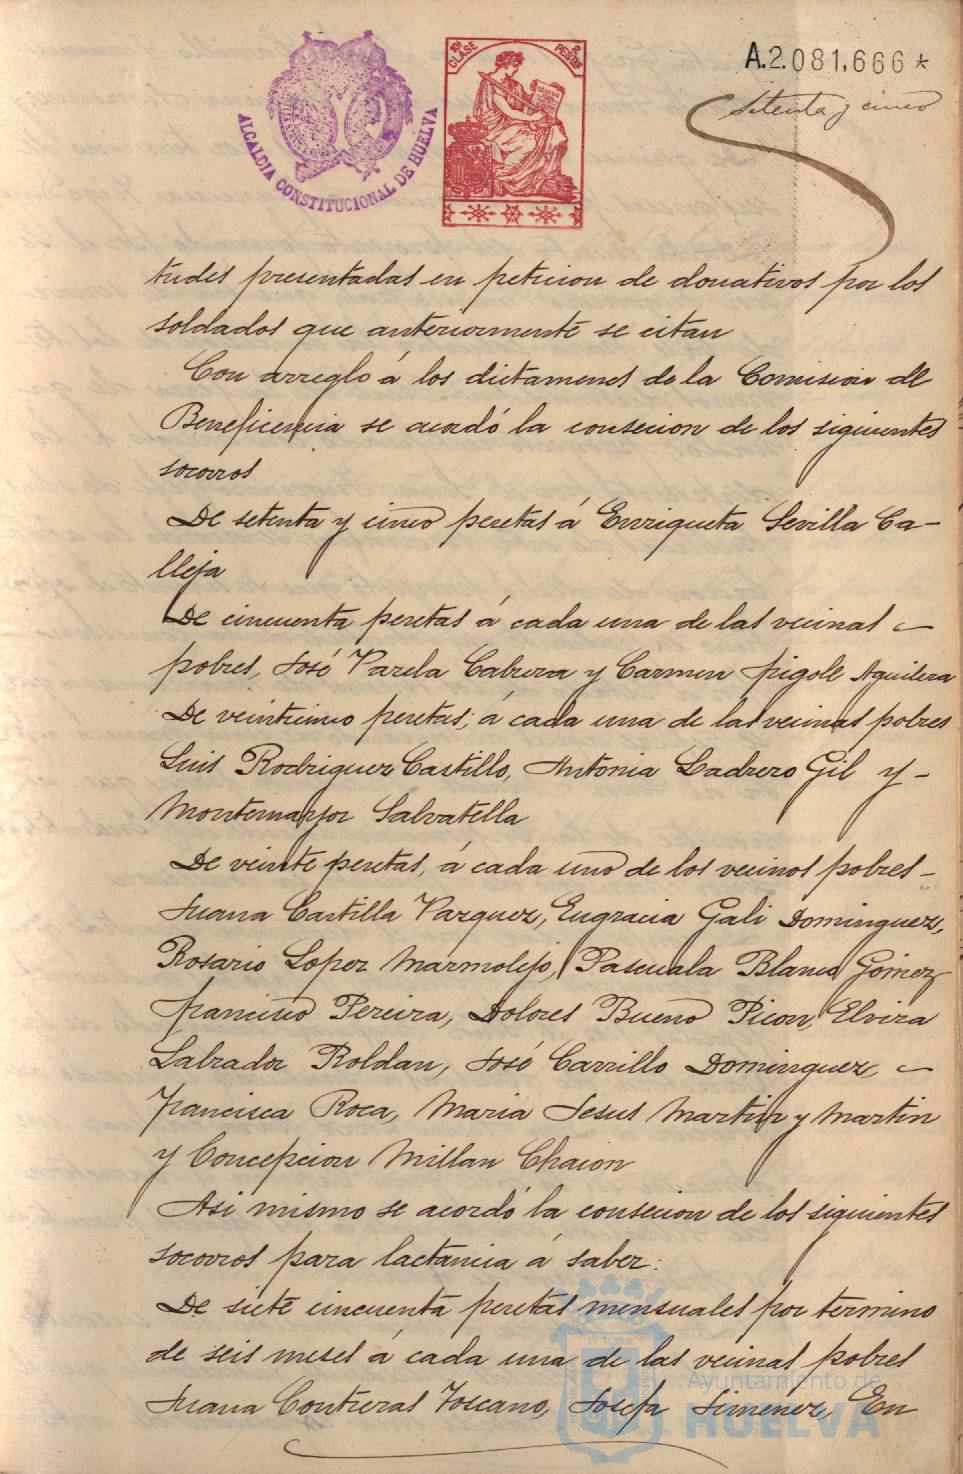 ALCALDIA CONSTITUCIONAL DE HUELVA
10ª CLASE 2 PESTAS
A.2.081,666*
Setenta y cinco
tudes presentadas en peticion de donativos por los
soldados que anteriormente se citan
Con arreglo á los dictamenes de la Comision de
Beneficencia se acordó la consecion de los siguientes
socorros
De setenta y cinco pesetas á Enriqueta Sevilla Ca-
lleja
De cincuenta pesetas á cada una de las vecinas
pobres, José Varela Cabrera y Carmen Frigole Aguilera
De veinticinco pesetas, á cada una de las vecinas pobres
Luis Rodriguez Castillo, Antonia Ladrero Gil y -
Montemayor Salvatella
De veinte pesetas, á cada uno de los vecinos pobres -
Juana Castilla Vazquez, Engracia Gali Dominguez,
Rosario Lopez Marmolejo, Pascuala Blanco Gomez
Francisco Pereira, Dolores Bueno Picon, Elvira
Labrador Roldan, José Carrillo Dominguez
Francisca Roca, Maria Jesus Martin y Martin
y Concepcion Millan Chaion
Asi mismo se acordó la consecion de los siguientes
socorros para lactancia á saber:
De siete cincuenta pesetas mensuales por termino
de seis meses á cada una de las vecinas pobres
Juana Contreras Toscano, Josefa Jimenez, En
Ayuntamiento de
HUELVA